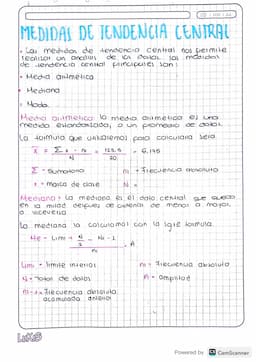 MEDIDAS DE TENDENCIA CENTRAL
• Las medidas de tendencia central nos permite
realizar un análisis de los datos. Las medidas
de tendencia central principales son:
• Media aritmética
• Mediana
• Moda
Media aritmética: la media aritmética es una
medida estandarizada, o un promedio de datos.
La formula que utilizaremos para calcularla sera
x̄ = Σ x · n / N = = 6,145
20
Σ = Sumatoria n = Frecuencia absoluta
x = marca de clase N =
Mediana: La mediana es el dato central que queda
en la mitad después de ordenar de menor a mayor
o viceversa
La mediana la calculamos con la sgte formula
Me = Limi + N/2 - Ni-1 / ni · A
Limi = limite inferior ni = Frecuencia absoluta
N = Total de datos A = amplitud
Frecuencia absoluta
acumulada anterior
Powered by CS CamScanner